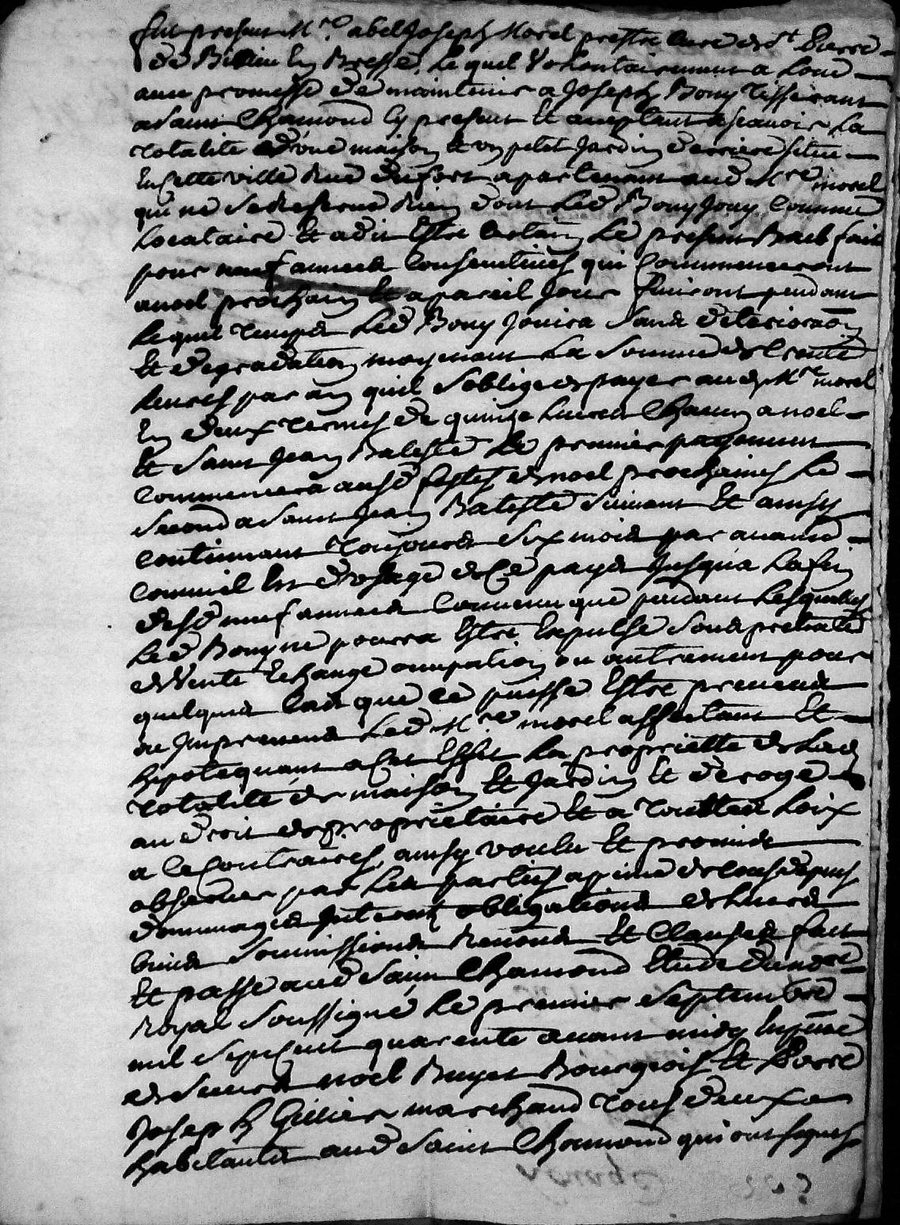 fut present Mre abel Joseph Morel prestre curé de st Pierre
de En Bresse, lequel Volontairement a Loué
avec promesse de maintenir a Joseph Bony tisserant
a Saint Chamond cy present et aceptent ascavoir La
totalité d'une maison et un petit Jardin derrier situé
En cette ville Rue du fort apartenant aud Mre morel
qui ne se Reserve Rien dont Led Bony Jouy comme
Locataire et a dit Estre certain Le present Bail fait
pour neuf années consecutives qui commenceront
a noel prochain et a pareil Jour finiront pendant
Lequel temps Led Bony Jouira sans deterioraon
et degradation moyenant La somme de trente
Livres par an quil soblige de payer aud Mre morel
En deux termes de quinze Livres Chacun a noel
et Saint Jean Batiste Le premier payement
commencera ausd festes de noel prochaines Le
second a Saint Jean Batiste Suivant et ainsy
continuant toujours six mois par avance
comme il Est d'usage de Ce pays Jusqua La fin
desd neuf années convenu que pendant Lesquelles
Led Bony ne pourra Estre Expulsé sous pretexte
de Vente Echange occupation ou autrement pour
quelques cas que ce puisse Estre preveus
ou Impreveus Led Mre morel affectant et
hipotequant a cet Effet La propriette de Lad
totalité de maison et Jardin et deroge
au droit de proprietaire et a touttes Loix
a ce contraires, ainsy voulu et promis
observer par Les parties a peine de tous depens
dommages Interests obligations de Leurs
biens soumissions Renons et Clauses fait
et passé aud Saint Chamond Etude du nore
Royal soussigné Le premier Septembre
mil sept cent quarente avant midy En pnce
de sieurs noel Bourgeois et Pierre
Joseph Gillier marchand tous deux
habitants aud Saint Chamond qui ont signés